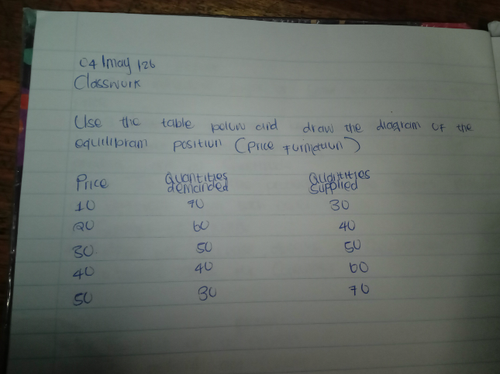 04 / may / 26
Classwork
Use the table below and draw the diagram of the
equilibram position (price formation)
Price Quantities demanded Quantities supplied
10 70 30
20 60 40
30 50 50
40 40 60
50 30 70